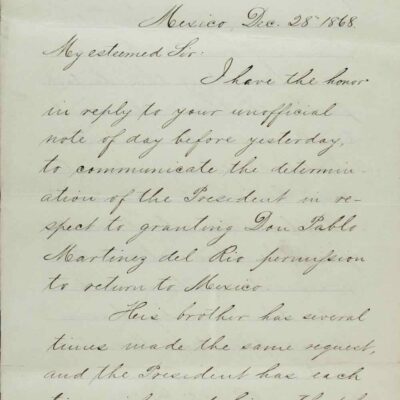 Mexico, Dec. 28 1868.
My esteemed Sir:
I have the honor
in reply to your unofficial
note of day before yesterday,
to communicate the determin-
ation of the President in re-
spect to granting Don Pablo
Martinez del Rio permission
to return to Mexico.
His brother has several
times made the same request,
and the President has each